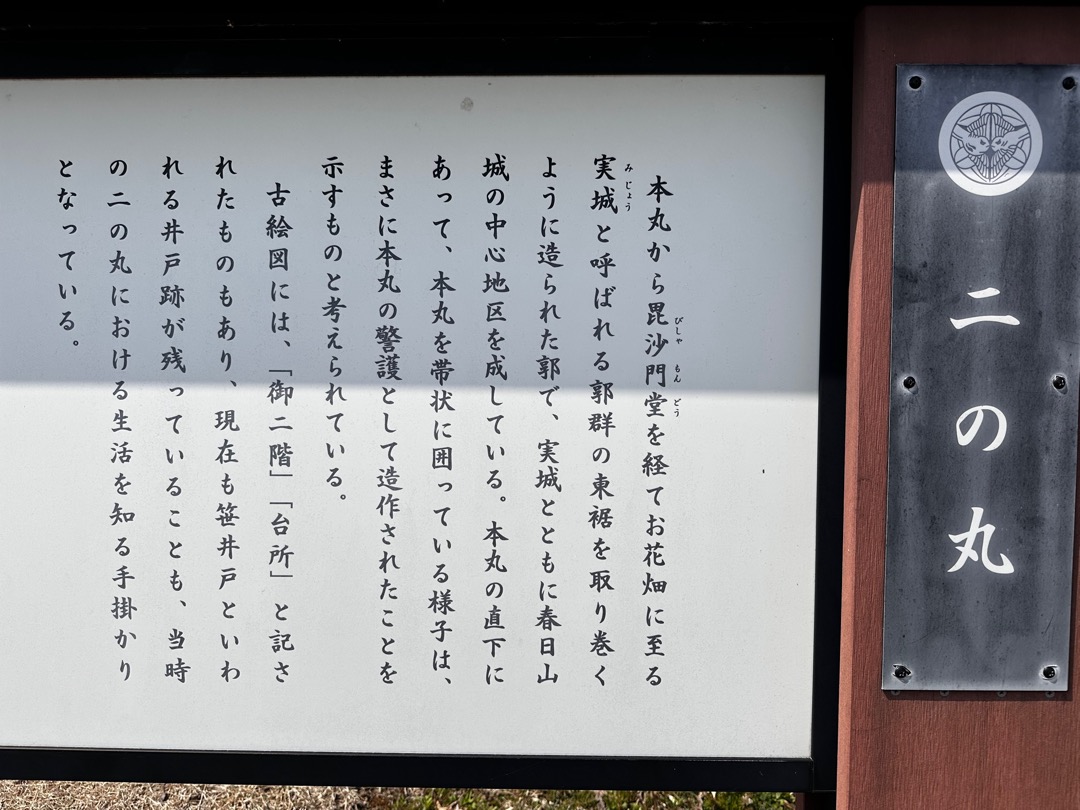 二の丸
本丸から毘沙門堂を経てお花畑に至る
実城と呼ばれる郭群の東裾を取り巻く
ように造られた郭で、実城とともに春日山
城の中心地区を成している。本丸の直下に
あって、本丸を帯状に囲っている様子は、
まさに本丸の警護として造作されたことを
示すものと考えられている。
古絵図には、「御二階」「台所」と記さ
れたものもあり、現在も笹井戸といわ
れる井戸跡が残っていることも、当時
の二の丸における生活を知る手掛かり
となっている。
びしゃ もん どう
みじょう